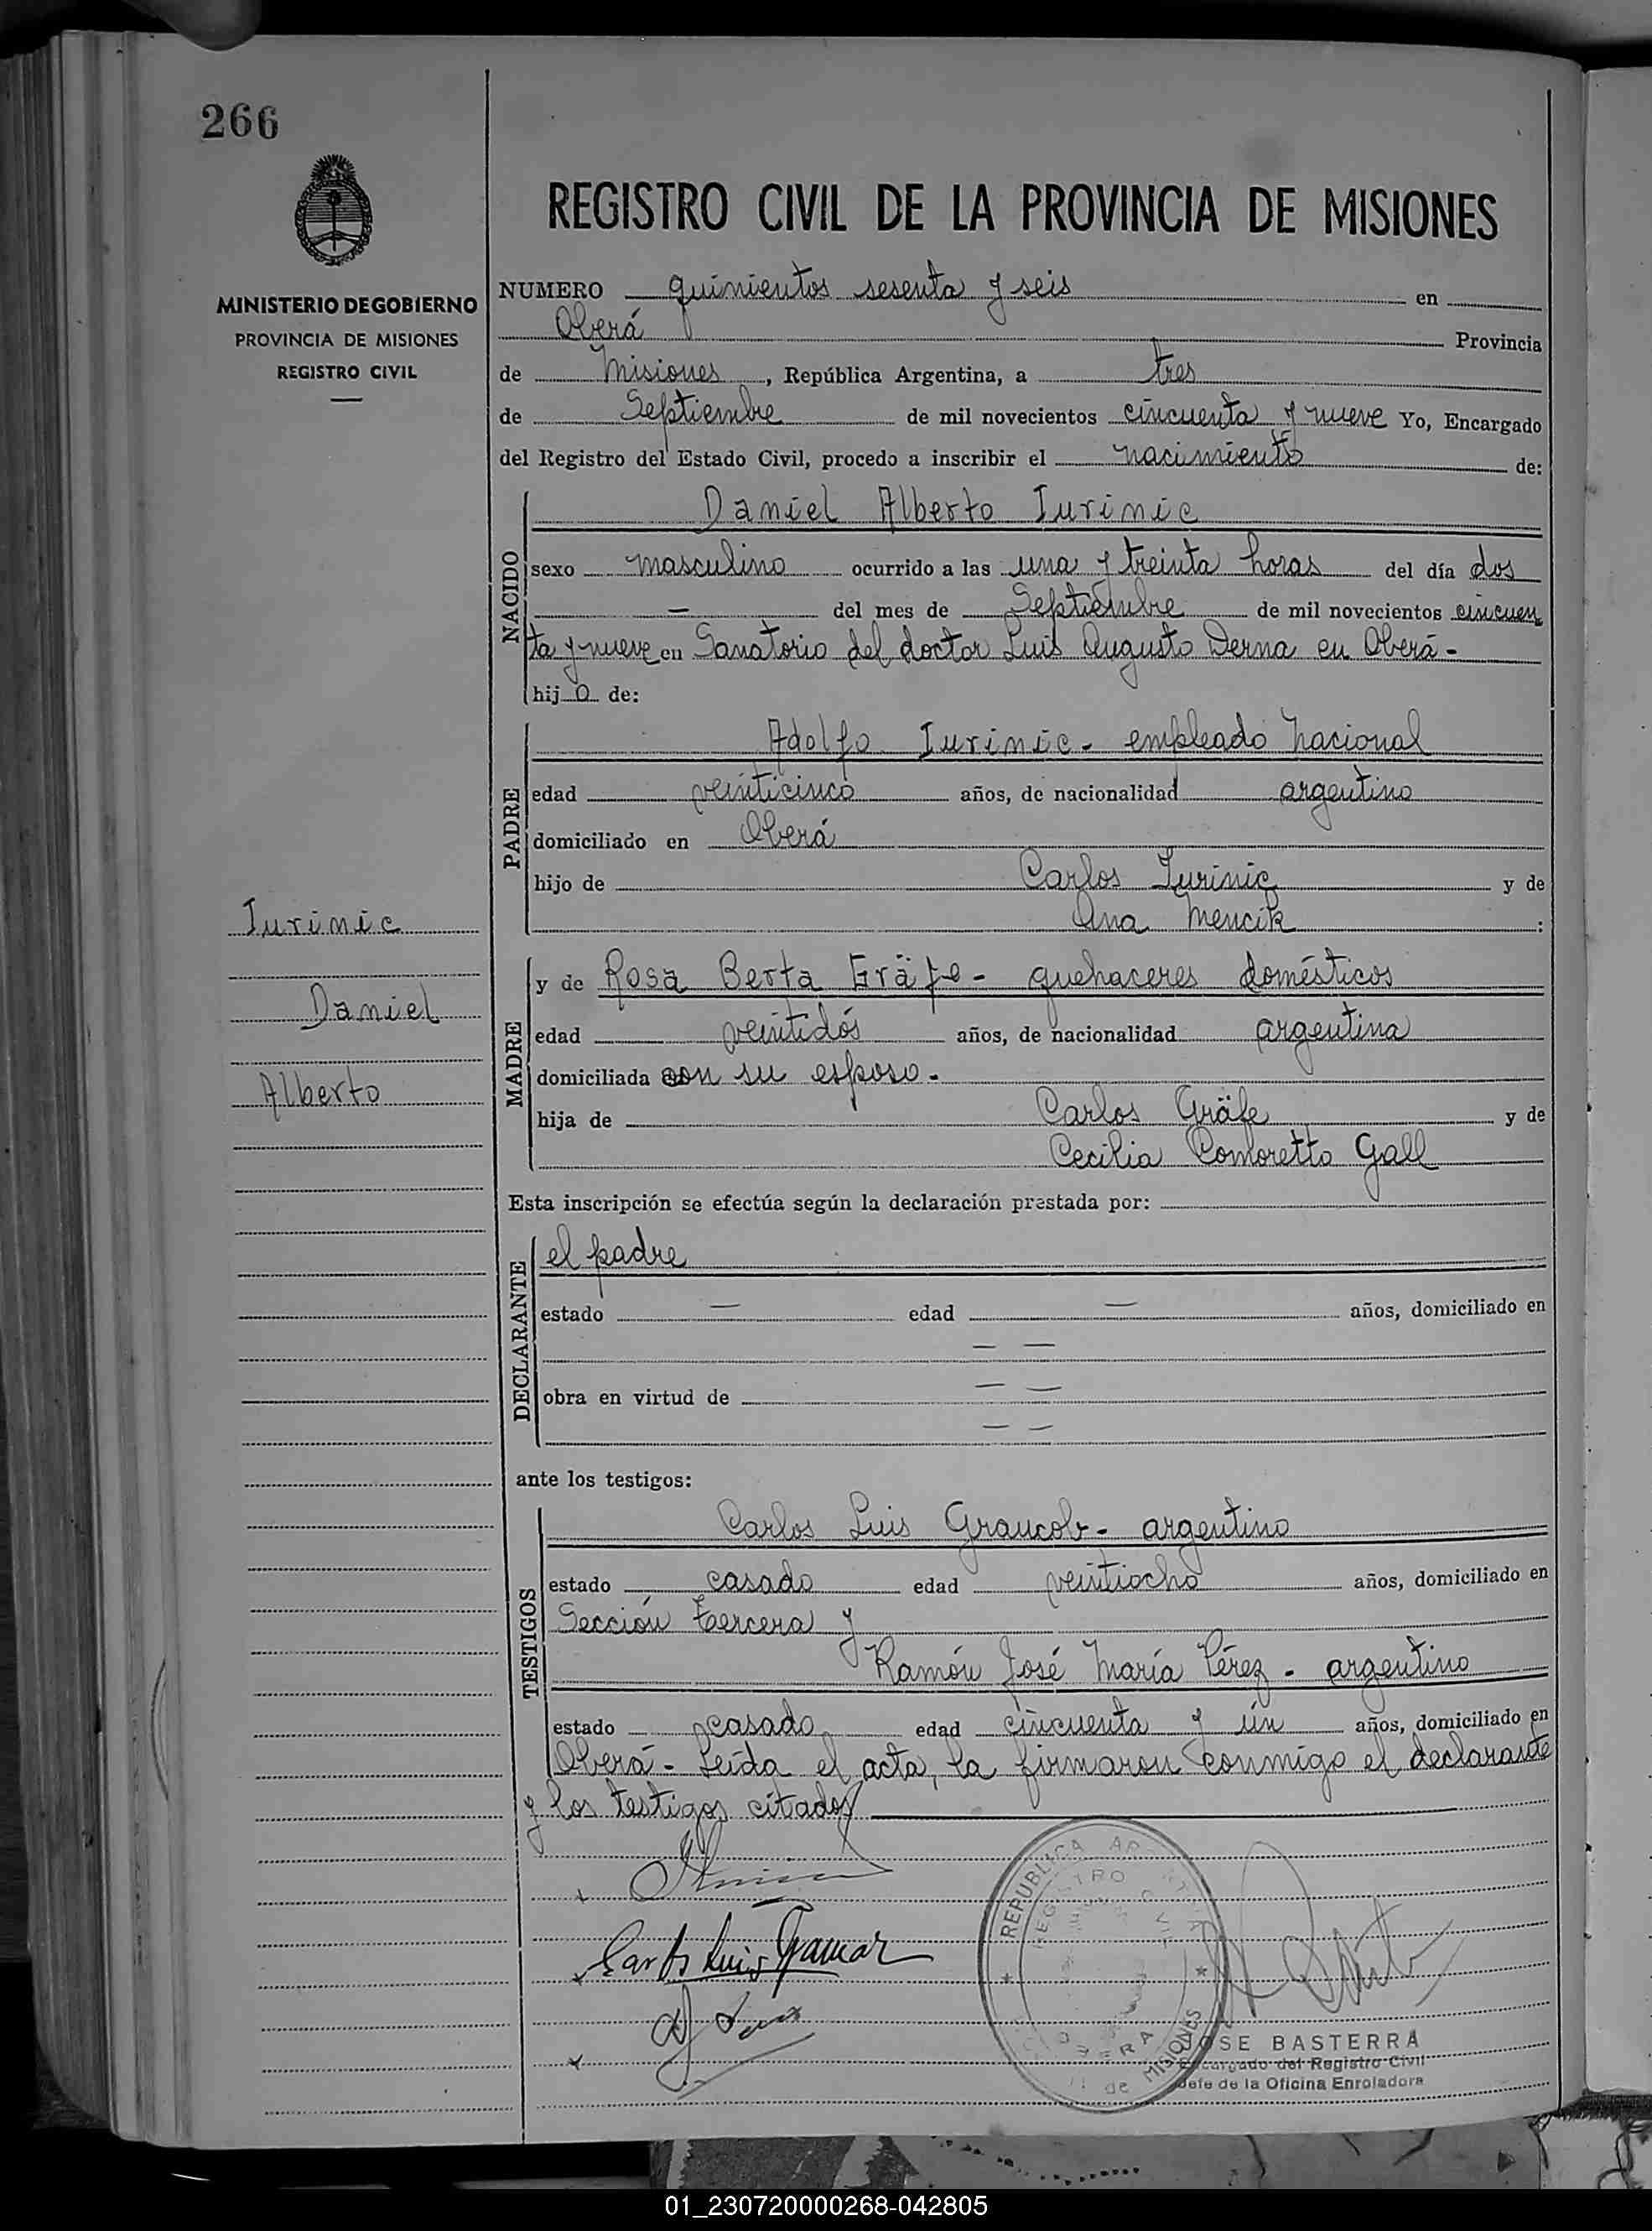 266
MINISTERIO DE GOBIERNO
PROVINCIA DE MISIONES
REGISTRO CIVIL
REGISTRO CIVIL DE LA PROVINCIA DE MISIONES
NUMERO quinientos sesenta y seis en
Oberá Provincia
de Misiones, República Argentina, a tres
de Septiembre de mil novecientos cincuenta y nueve Yo, Encargado
del Registro del Estado Civil, procedo a inscribir el nacimiento de:
NACIDO
Daniel Alberto Iurinic
sexo masculino ocurrido a las una y treinta horas del día dos
— del mes de Septiembre de mil novecientos cincuen
ta y nueve en Sanatorio del doctor Luis Augusto Derna en Oberá -
hijo de:
PADRE
Adolfo Iurinic - empleado nacional
edad veinticinco años, de nacionalidad argentino
domiciliado en Oberá
hijo de Carlos Iurinic y de
Ana Mencik :
MADRE
y de Rosa Berta Gräfe - quehaceres domésticos
edad veintidós años, de nacionalidad argentina
domiciliada con su esposo.
hija de Carlos Gräfe y de
Cecilia Comoretto Gall
Esta inscripción se efectúa según la declaración prestada por:
DECLARANTE
el padre
estado — edad — años, domiciliado en
— —
obra en virtud de — —
— —
ante los testigos:
TESTIGOS
Carlos Luis Graucob - argentino
estado casado edad veintiocho años, domiciliado en
Sección tercera y
Ramón José María Pérez - argentino
estado casado edad cincuenta y ún años, domiciliado en
Oberá - Leída el acta, la firmaron conmigo el declarante
y los testigos citados
Iurinic
Daniel
Alberto
Carlos Luis
REPUBLICA ARGENTINA
REGISTRO CIVIL
OBERA
MISIONES
JOSE BASTERRA
Encargado del Registro Civil
Jefe de la Oficina Enroladora
01_230720000268-042805